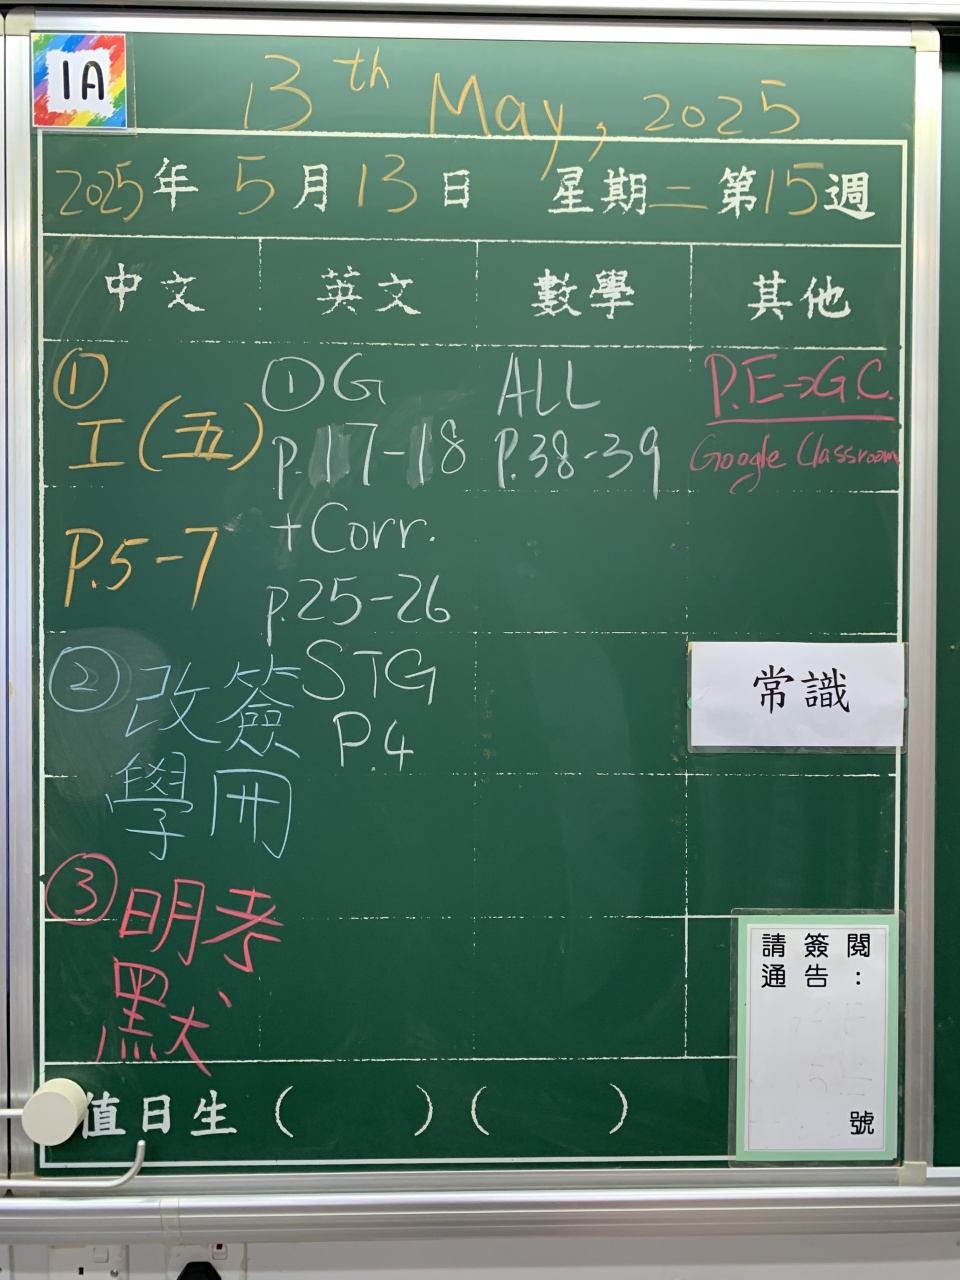 1A
13th May, 2025
2025年 5月13日 星期二 第15週
中文 英文 數學 其他
①
工(五)
P.5-7
②改簽
學冊
③明考
默
①G
p.17-18
+Corr.
p.25-26
STG
P.4
ALL
P.38-39
P.E→G.C.
Google Classroom
常識
請簽閱
通告：
號
值日生 ( ) ( )